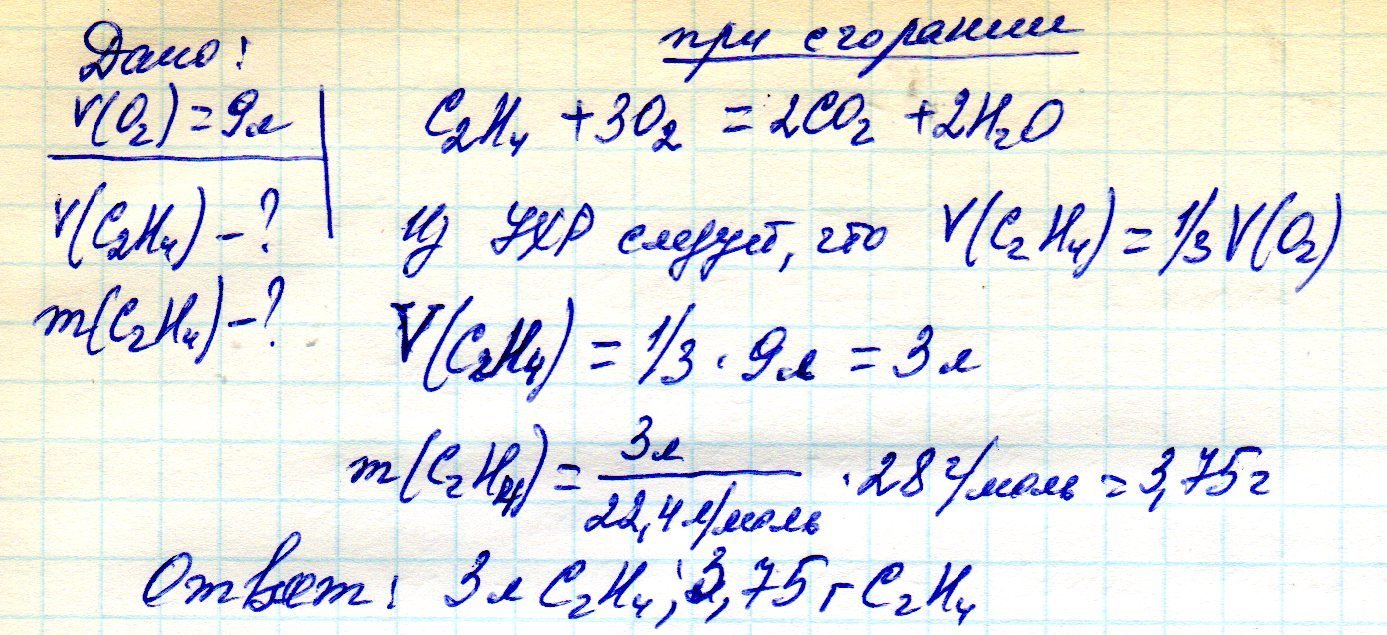 Дано:
V(O₂)=9л
V(C₂H₄)-?
m(C₂H₄)-?
при сгорании
C₂H₄ +3O₂ =2CO₂ +2H₂O
Из УХР следует, что V(C₂H₄)=1/3V(O₂)
V(C₂H₄)=1/3·9л=3л
m(C₂H₄)=3л/22,4л/моль·28г/моль=3,75г
Ответ: 3л C₂H₄; 3,75г C₂H₄